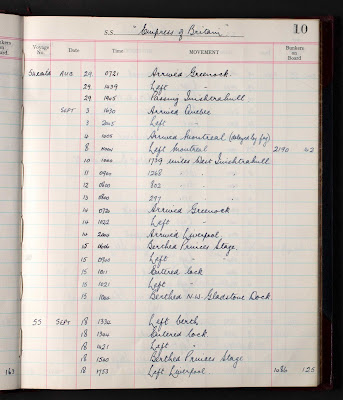 10
S.S. "Empress of Britain"
Voyage No. Date Time MOVEMENT Bunkers on Board
AUG 29 0721 Arrived Greenock
29 1439 Left "
29 1905 Passing Inishtrahull
SEPT 3 1630 Arrived Quebec
3 2015 Left "
4 1005 Arrived Montreal (delayed by fog)
8 Left Montreal 2190 42
10 1739 miles West Inishtrahull
11 0900 1268 " "
12 0800 802 " "
13 0800 297 " "
14 0720 Arrived Greenock
14 1022 Left "
14 2000 Arrived Liverpool
15 Berthed Princes Stage
15 0900 Left "
15 1011 Entered lock
15 1021 Left "
15 Berthed N.W. Gladstone Dock
SEPT 18 1334 Left berth
18 Entered lock
18 1421 Left "
18 1540 Berthed Princes Stage
163 18 1753 Left Liverpool 125